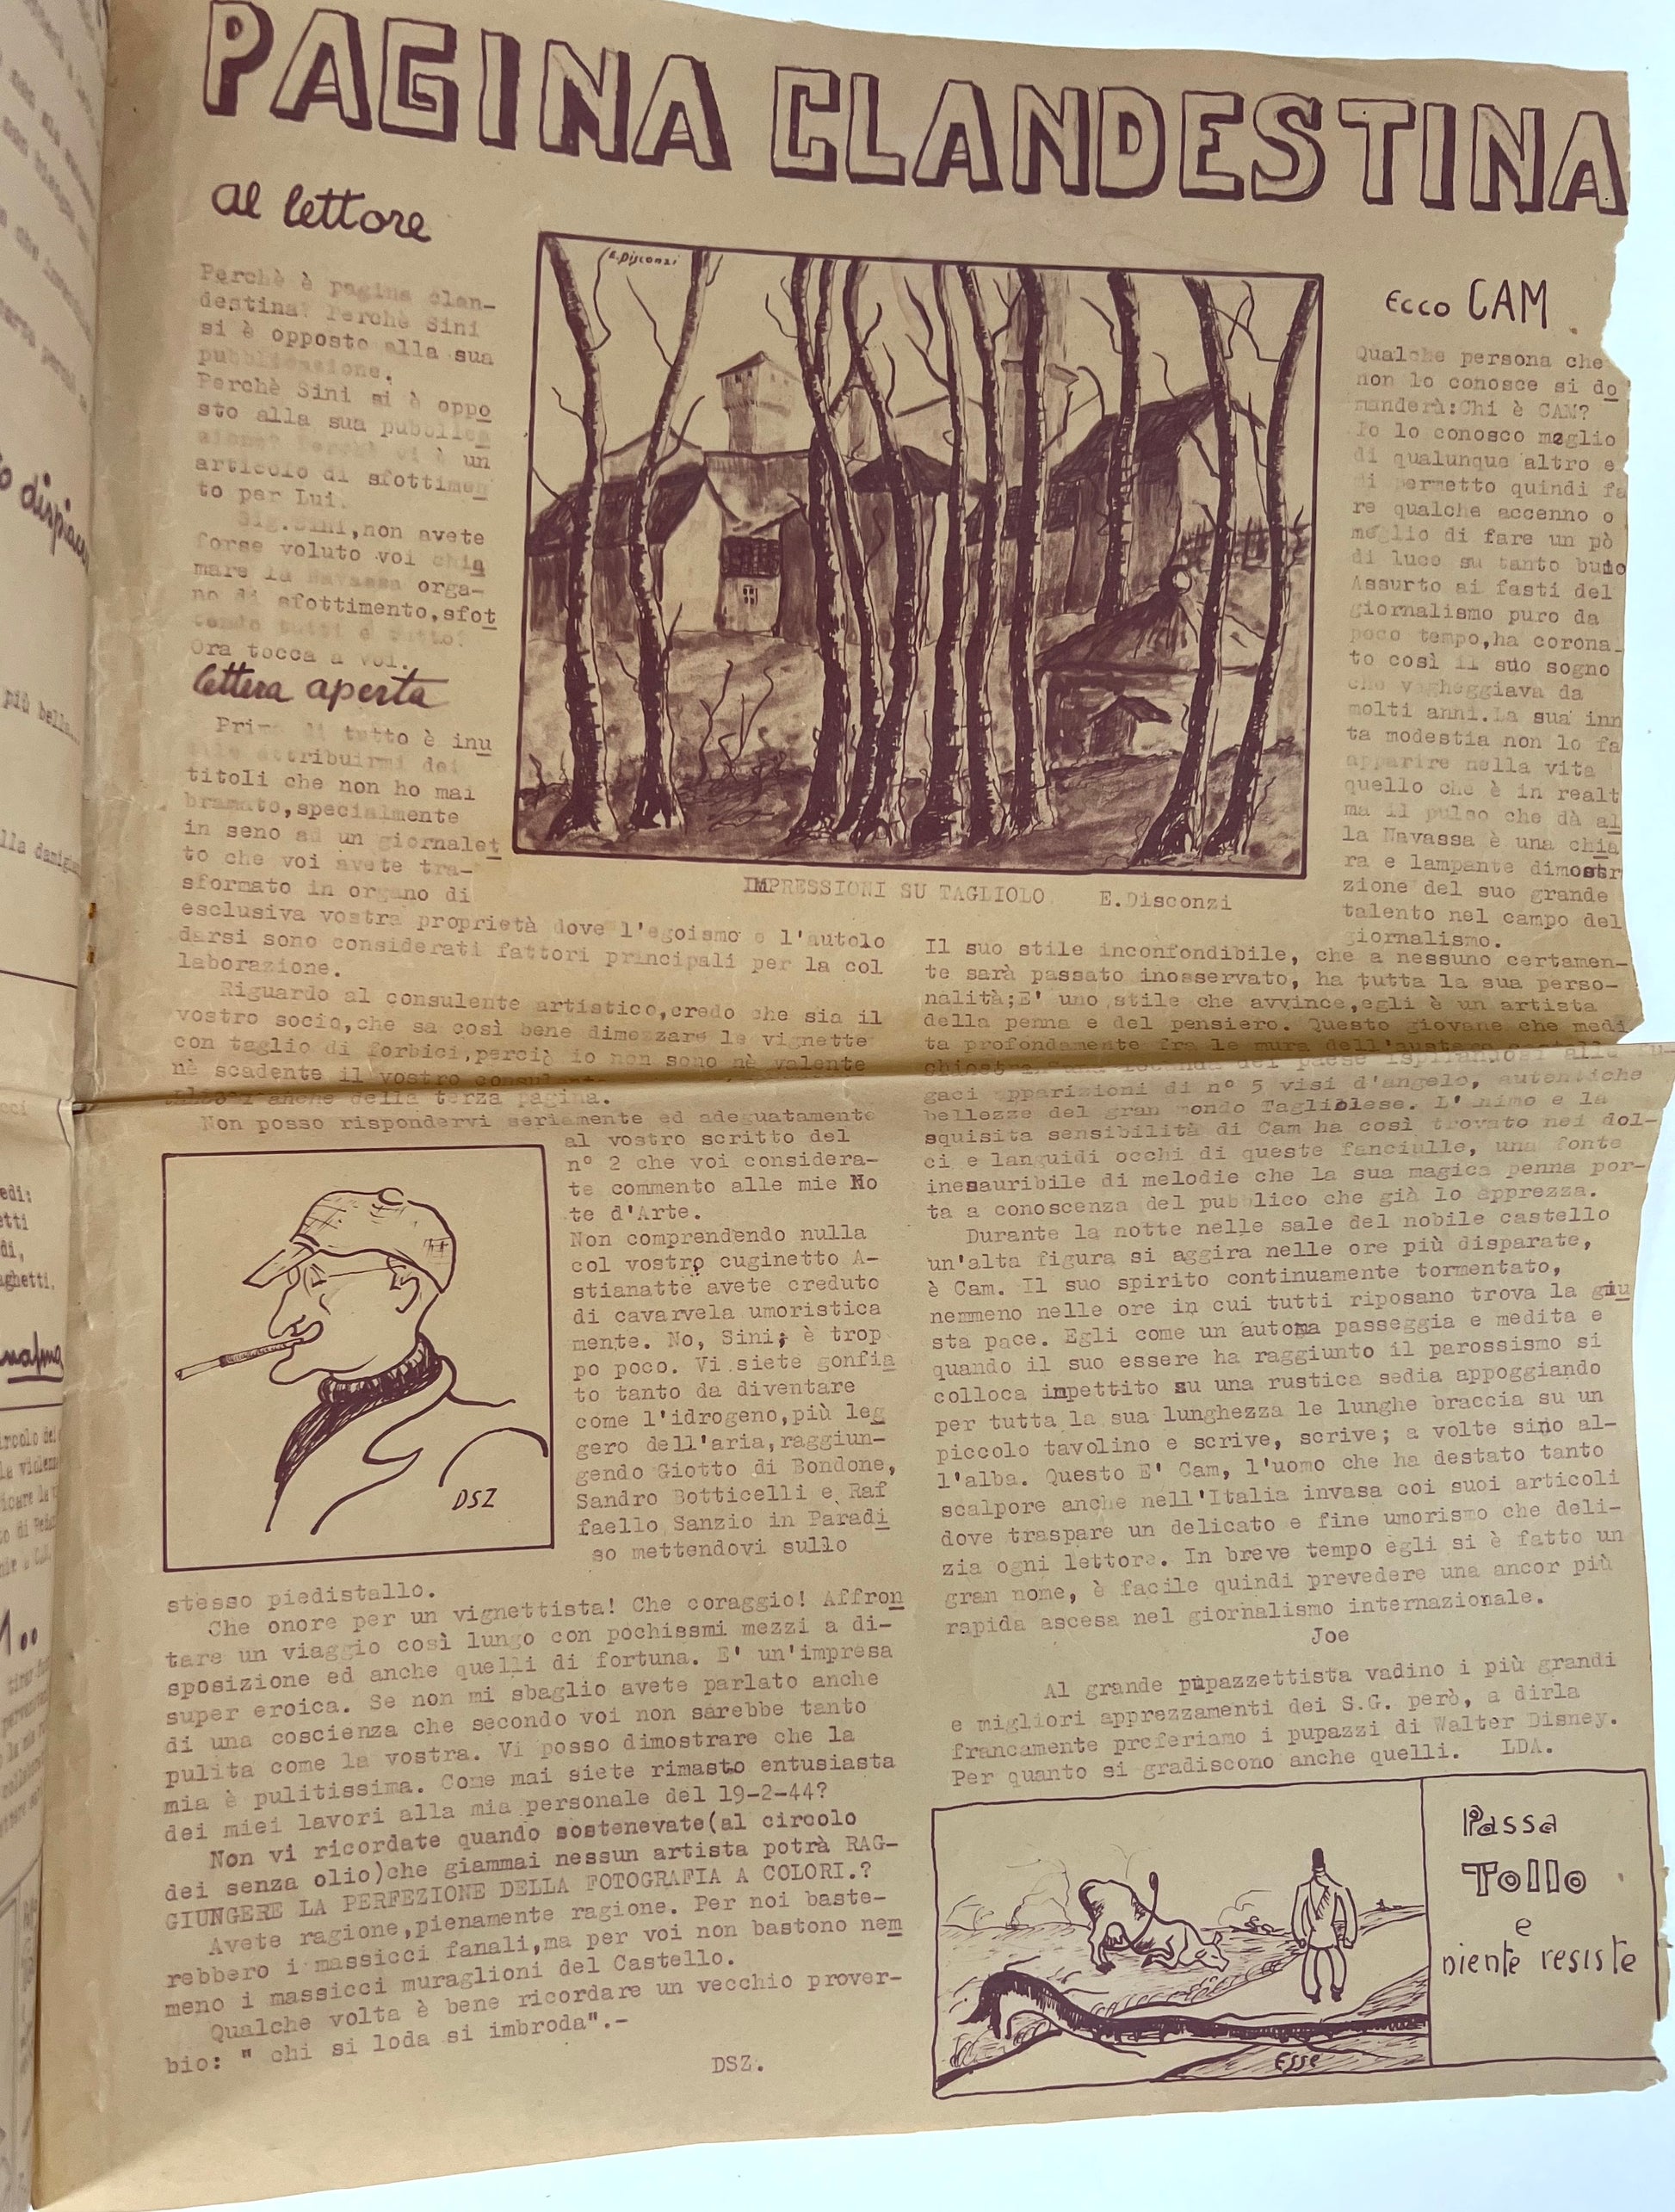 PAGINA CLANDESTINA
al lettore
Perchè è pagina clan-
destina? Perchè Sini
si è opposto alla sua
pubblicazione.
Perchè Sini si è oppo
sto alla sua pubblica
zione? Perchè vi è un
articolo di sfottimen
to per Lui.
Sig.Sini,non avete
forse voluto voi chia
mare la Navassa orga-
no di sfottimento,sfot
tendo tutti e tutto?
Ora tocca a voi.
lettera aperta
Prima di tutto è inu
tile attribuirmi dei
titoli che non ho mai
bramato,specialmente
in seno ad un giornalet
to che voi avete tra-
sformato in organo di
esclusiva vostra proprietà dove l'egoismo e l'autolo
darsi sono considerati fattori principali per la col
laborazione.
Riguardo al consulente artistico,credo che sia il
vostro socio,che sa così bene dimezzare le vignette
con taglio di forbici,perciò io non sono nè valente
nè scadente il vostro
anche della terza pagina.
Non posso rispondervi seriamente ed adeguatamente
al vostro scritto del
n° 2 che voi considera-
te commento alle mie No
te d'Arte.
Non comprendendo nulla
col vostro cuginetto A-
stianatte avete creduto
di cavarvela umoristica
mente. No, Sini; è trop
po poco. Vi siete gonfia
to tanto da diventare
come l'idrogeno,più leg
gero dell'aria,raggiun-
gendo Giotto di Bondone,
Sandro Botticelli e Raf
faello Sanzio in Paradi
so mettendovi sullo
DSZ
stesso piedistallo.
Che onore per un vignettista! Che coraggio! Affron
tare un viaggio così lungo con pochissmi mezzi a di-
sposizione ed anche quelli di fortuna. E' un'impresa
super eroica. Se non mi sbaglio avete parlato anche
di una coscienza che secondo voi non sarebbe tanto
pulita come la vostra. Vi posso dimostrare che la
mia è pulitissima. Come mai siete rimasto entusiasta
dei miei lavori alla mia personale del 19-2-44?
Non vi ricordate quando sostenevate(al circolo
dei senza olio)che giammai nessun artista potrà RAG-
GIUNGERE LA PERFEZIONE DELLA FOTOGRAFIA A COLORI.?
Avete ragione,pienamente ragione. Per noi baste-
rebbero i massicci fanali,ma per voi non bastono nem
meno i massicci muraglioni del Castello.
Qualche volta è bene ricordare un vecchio prover-
bio: " chi si loda si imbroda".-
DSZ.
E.Disconzi
IMPRESSIONI SU TAGLIOLO E.Disconzi
Ecco CAM
Qualche persona che
non lo conosce si do
manderà:Chi è CAM?
Io lo conosco meglio
di qualunque altro e
mi permetto quindi fa
re qualche accenno o
meglio di fare un pò
di luce su tanto buio
Assurto ai fasti del
giornalismo puro da
poco tempo,ha corona
to così il suo sogno
che vagheggiava da
molti anni.La sua inn
ta modestia non lo fa
apparire nella vita
quello che è in realt
ma il pulso che dà al
la Navassa è una chia
ra e lampante dimostr
zione del suo grande
talento nel campo del
giornalismo.
Il suo stile inconfondibile, che a nessuno certamen-
te sarà passato inosservato, ha tutta la sua perso-
nalità;E' uno stile che avvince,egli è un artista
della penna e del pensiero. Questo giovane che medi
ta profondamente fra le mura dell'austero
del paese ispirandosi alle
gaci apparizioni di n° 5 visi d'angelo, autentiche
bellezze del gran mondo Tagliolese. L'animo e la
squisita sensibilità di Cam ha così trovato nei dol-
ci e languidi occhi di queste fanciulle, una fonte
inesauribile di melodie che la sua magica penna por-
ta a conoscenza del pubblico che già lo apprezza.
Durante la notte nelle sale del nobile castello
un'alta figura si aggira nelle ore più disparate,
è Cam. Il suo spirito continuamente tormentato,
nemmeno nelle ore in cui tutti riposano trova la giu
sta pace. Egli come un automa passeggia e medita e
quando il suo essere ha raggiunto il parossismo si
colloca impettito su una rustica sedia appoggiando
per tutta la sua lunghezza le lunghe braccia su un
piccolo tavolino e scrive, scrive; a volte sino al-
l'alba. Questo E' Cam, l'uomo che ha destato tanto
scalpore anche nell'Italia invasa coi suoi articoli
dove traspare un delicato e fine umorismo che deli-
zia ogni lettore. In breve tempo egli si è fatto un
gran nome, è facile quindi prevedere una ancor più
rapida ascesa nel giornalismo internazionale.
Joe
Al grande pupazzettista vadino i più grandi
e migliori apprezzamenti dei S.G. però, a dirla
francamente preferiamo i pupazzi di Walter Disney.
Per quanto si gradiscono anche quelli. LDA.
Passa
Tollo
e
niente resiste
Esse